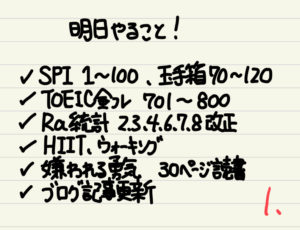 明日やること!
✓ SPI 1〜100、玉手箱70〜120
✓ TOEIC金フレ 701〜800
✓ Ra統計 2.3.4.6.7.8改正
✓ HIIT、ウォーキング
✓ 嫌われる勇気 30ページ読書
✓ ブログ記事更新
1.